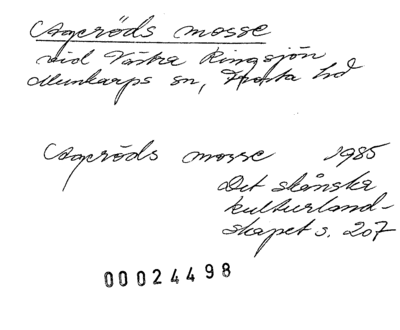 Ageröds mosse
vid Västra Ringsjön
Munkarps sn, Frosta hd
Ageröds mosse 1985
Det skånska
kulturland-
skapet s. 207
00024498